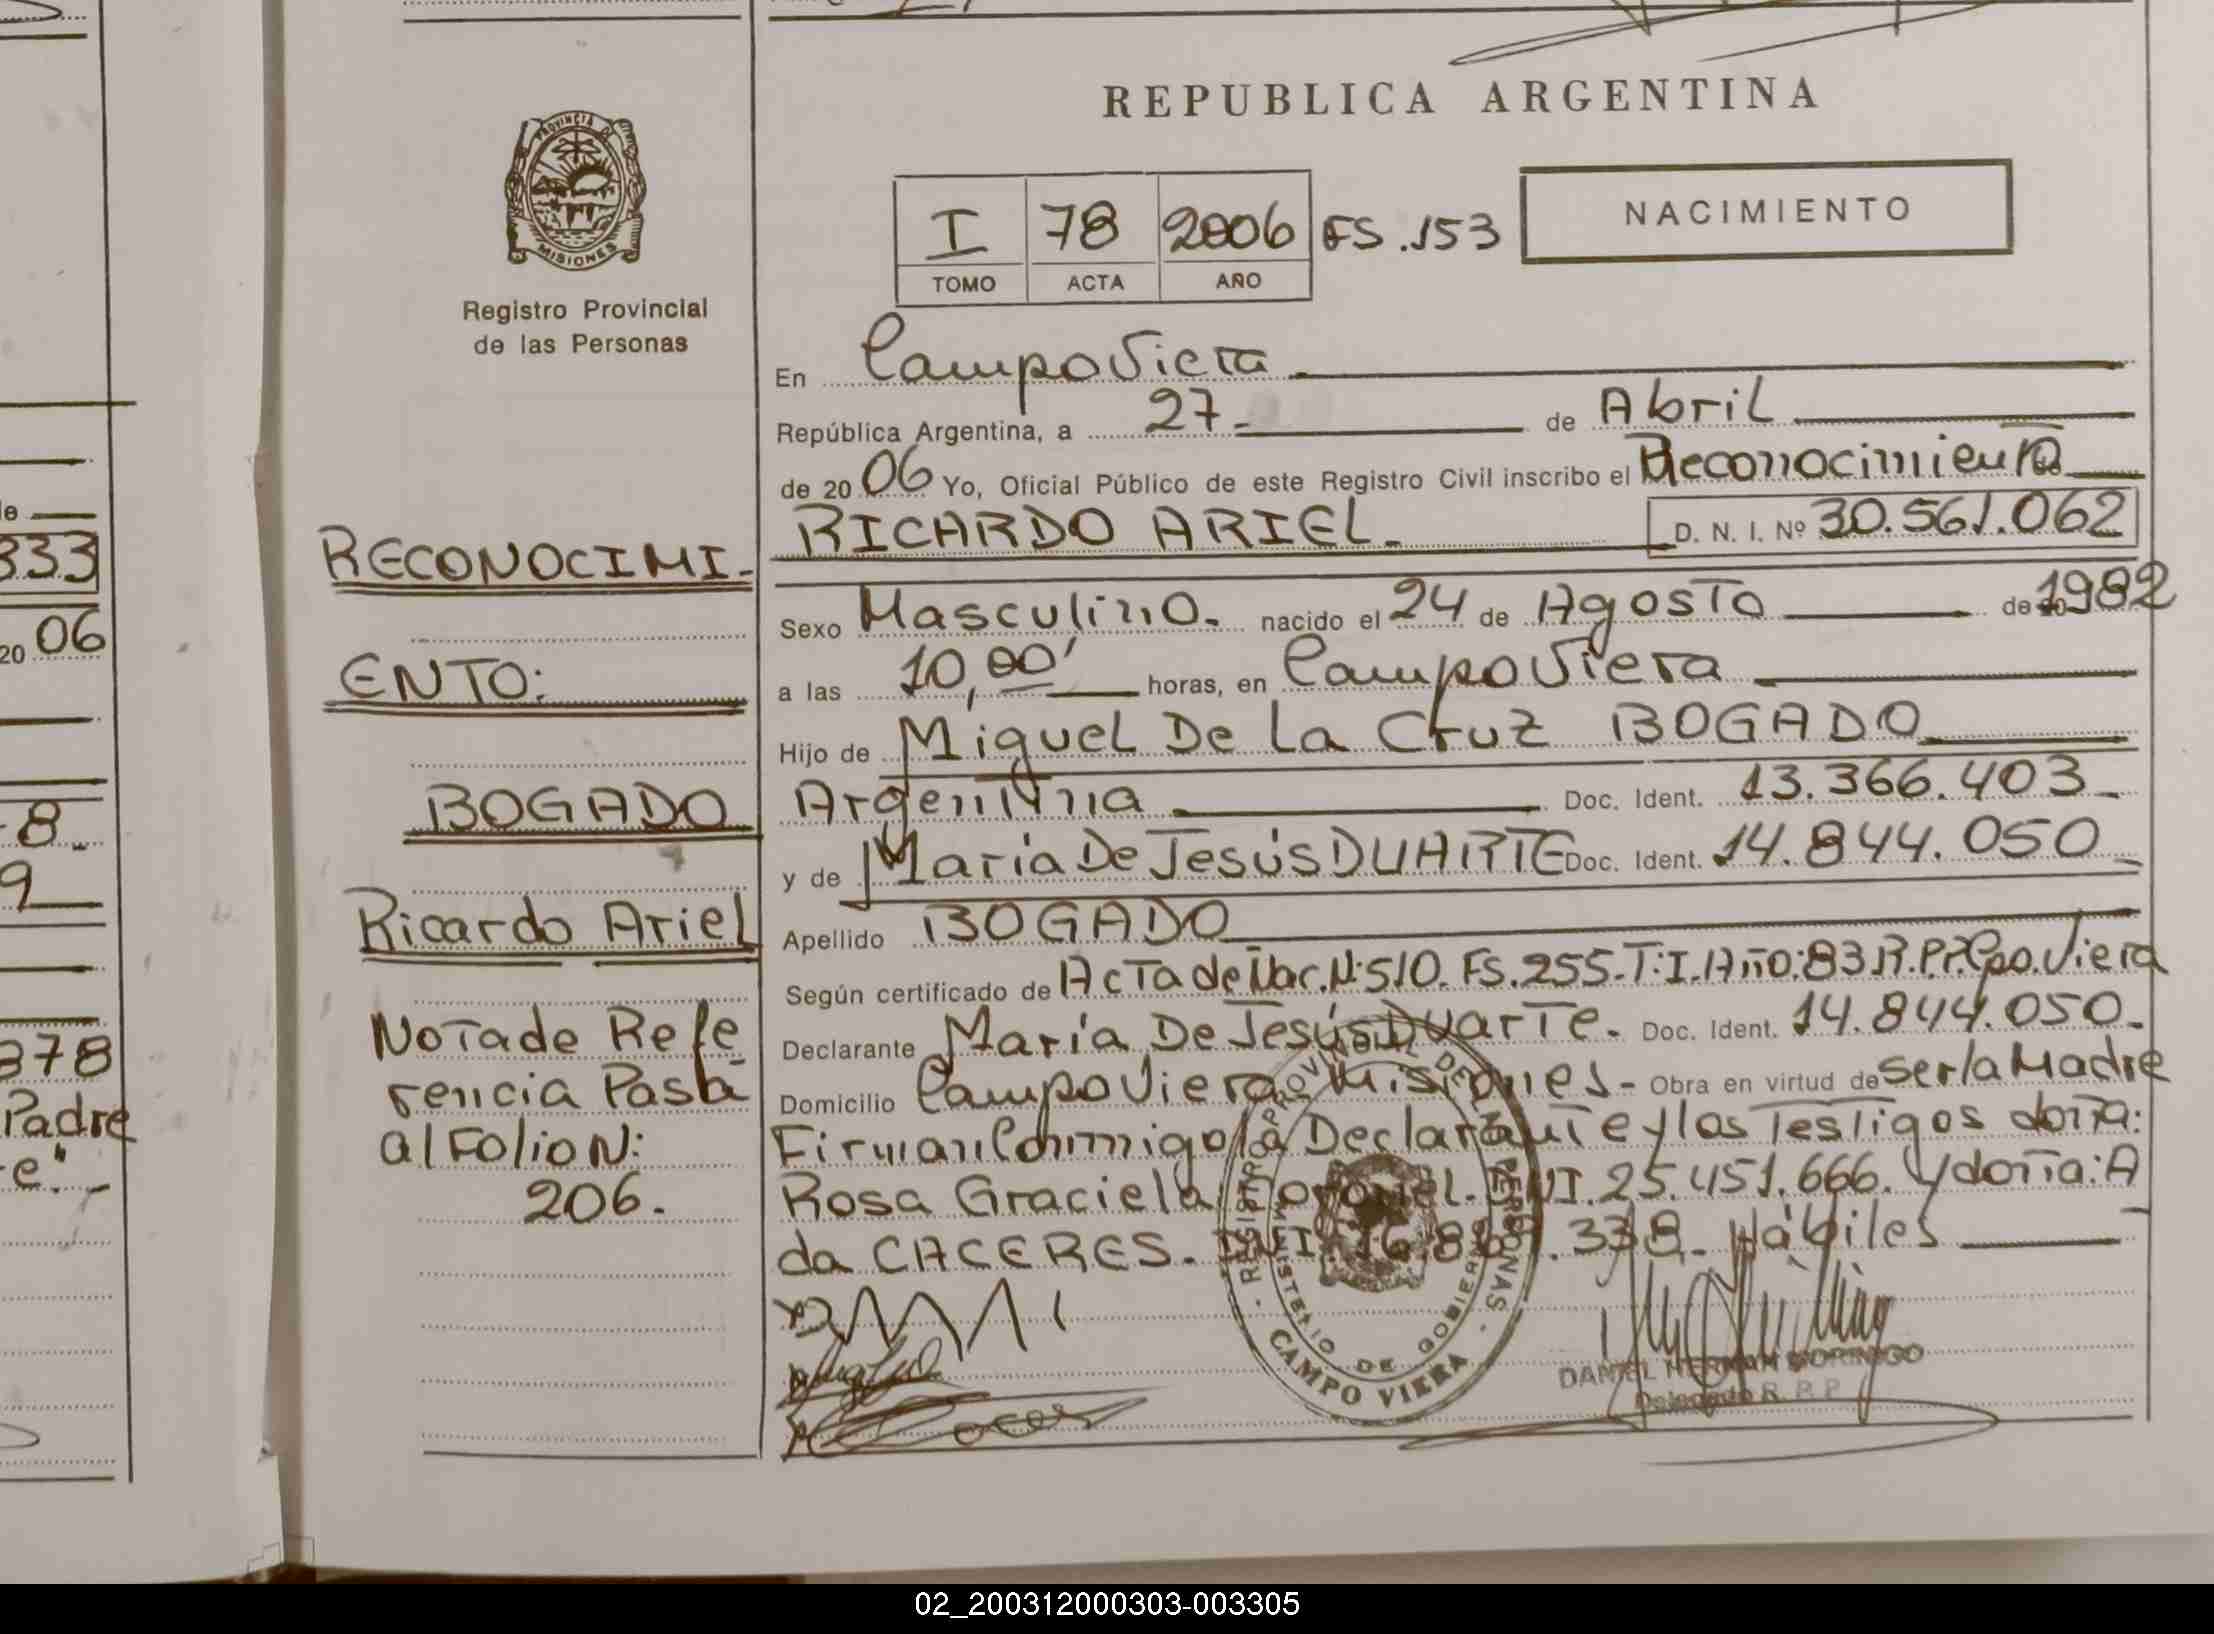 REPUBLICA ARGENTINA
PROVINCIA DE MISIONES
Registro Provincial
de las Personas
I 78 2006 FS.153
TOMO ACTA AÑO
NACIMIENTO
En Campo Viera
República Argentina, a 27 de Abril
de 2006 Yo, Oficial Público de este Registro Civil inscribo el Reconocimiento
RICARDO ARIEL. D. N. I. Nº 30.561.062
Sexo Masculino. nacido el 24 de Agosto de 1982
a las 10,00' horas, en Campo Viera
Hijo de Miguel De La Cruz BOGADO
Argentina Doc. Ident. 13.366.403
y de María De Jesús DUARTE Doc. Ident. 14.844.050
Apellido BOGADO
Según certificado de Acta de Nac. N:510. FS.255-T:I. Año:83 R.P.P. Cpo. Viera
Declarante María De Jesús Duarte. Doc. Ident. 14.844.050.
Domicilio Campo Viera Misiones- Obra en virtud de ser la Madre
Firman Conmigo la Declarante y los Testigos doña:
Rosa Graciela DNI. 25.451.666. y doña: A
da CACERES. DNI. 338. Hábiles
RECONOCIMI-
ENTO:
BOGADO
Ricardo Ariel
Nota de Refe
rencia Pasa
al Folio N:
206.
REGISTRO PROVINCIAL DE LAS PERSONAS
MINISTERIO DE GOBIERNO
CAMPO VIERA
DANIEL HERNAN DORINGO
Delegado R. P. P.
le
333
20 06
8
9
378
Padre
e."
02_200312000303-003305